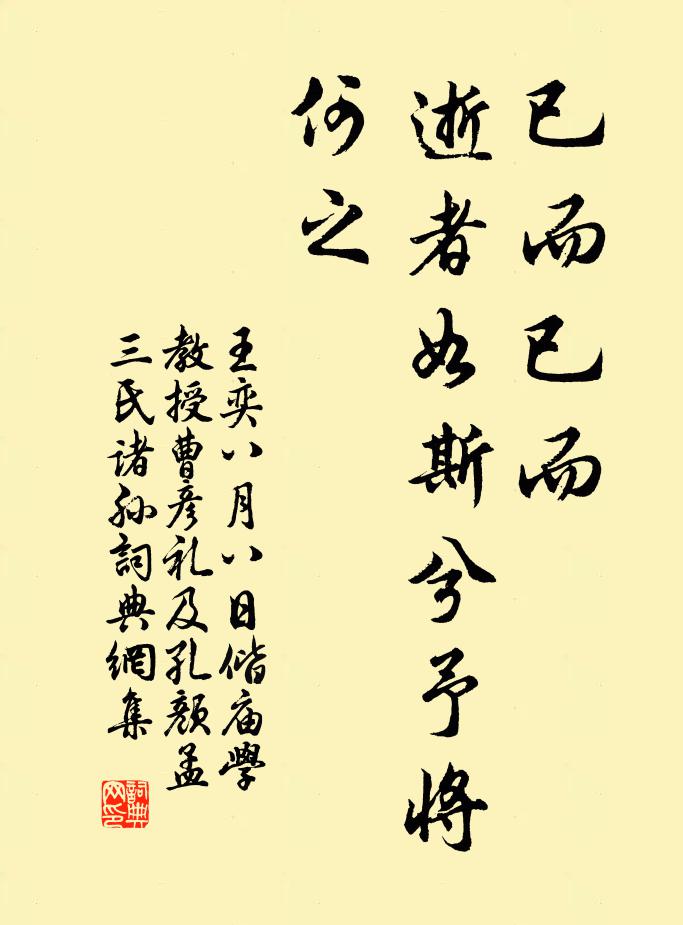 已而已而
逝者如斯兮予將
何之
王奕八月八日偕庙學
教授曹彦礼及孔顏孟
三氏诸孙詞典網集
詞典
网印